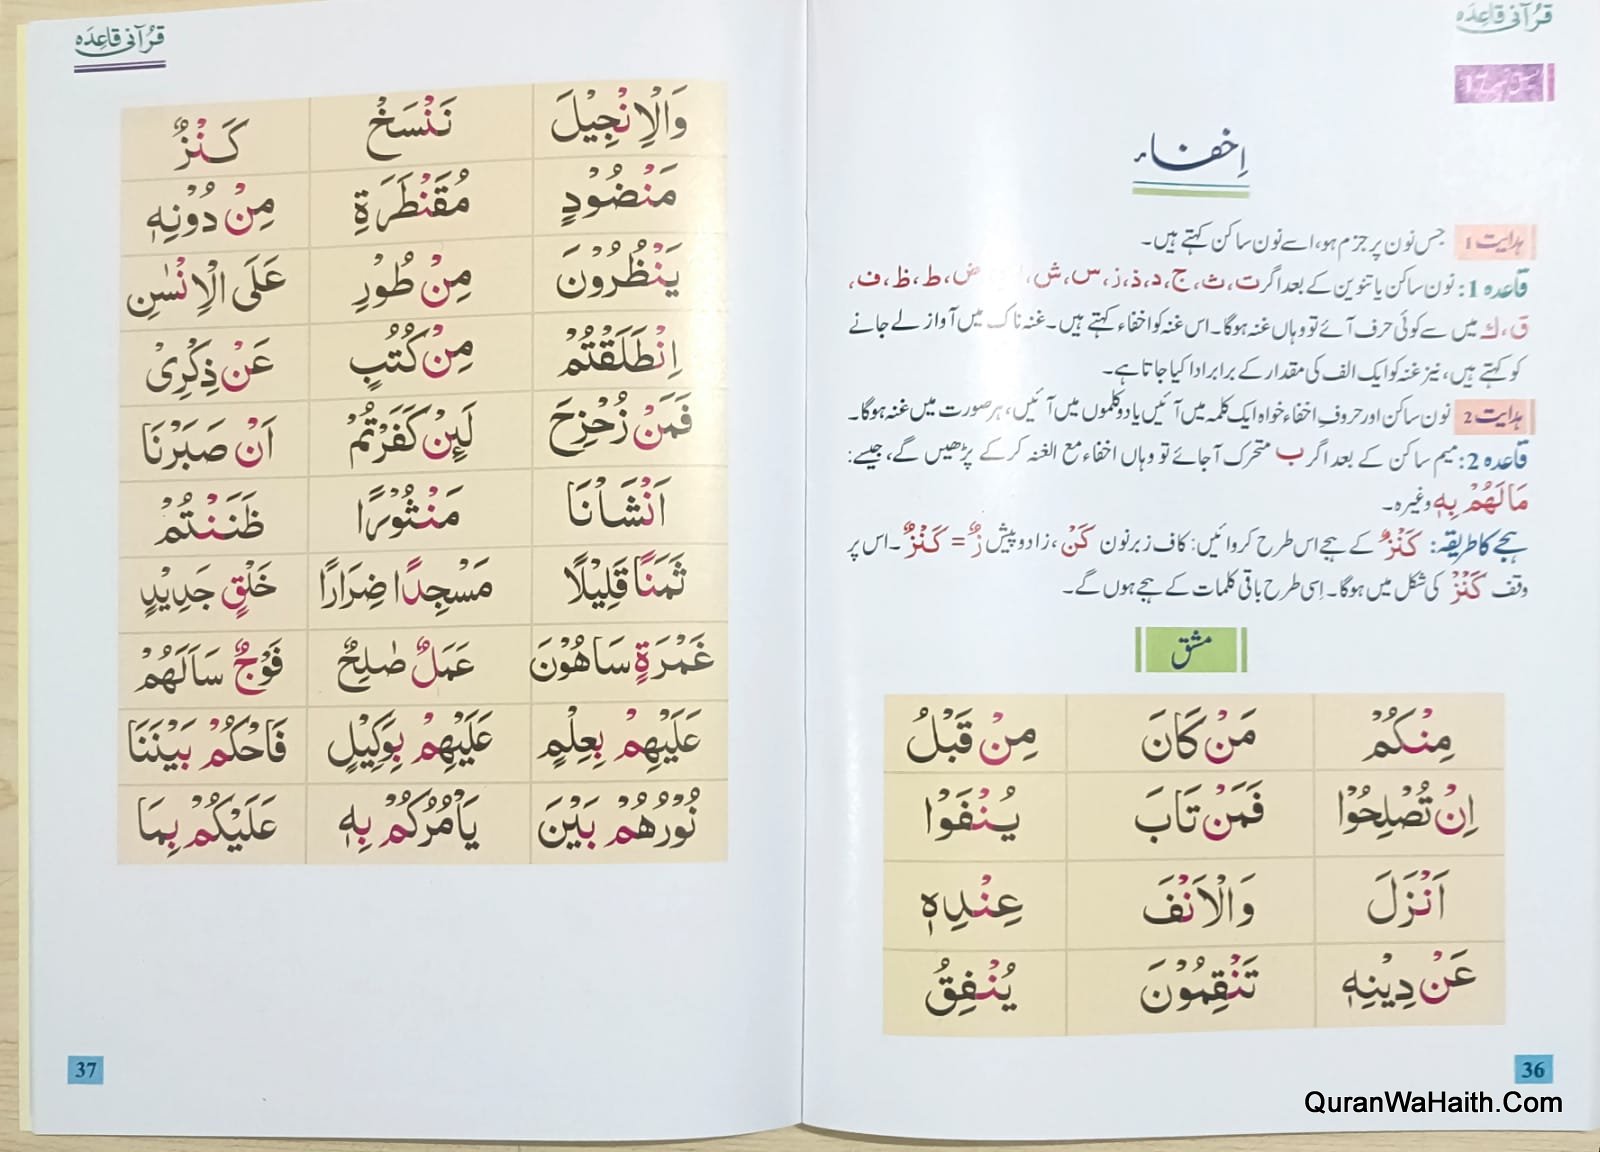 قرآنی قاعدہ
سبق نمبر 17
اِخفاء
ہدایت 1 جس نون پر جزم ہو، اسے نون ساکن کہتے ہیں۔
قاعدہ 1: نون ساکن یا تنوین کے بعد اگر ت، ث، ج، د، ذ، ز، س، ش، ض، ط، ظ، ف،
ق، ك میں سے کوئی حرف آئے تو وہاں غنہ ہوگا۔ اس غنہ کو اخفاء کہتے ہیں۔ غنہ ناک میں آواز لے جانے
کو کہتے ہیں، نیز غنہ کو ایک الف کی مقدار کے برابر ادا کیا جاتا ہے۔
ہدایت 2 نون ساکن اور حروفِ اخفاء خواہ ایک کلمہ میں آئیں یا دو کلموں میں آئیں، ہر صورت میں غنہ ہوگا۔
قاعدہ 2: میم ساکن کے بعد اگر ب متحرک آجائے تو وہاں اخفاء مع الغنہ کرکے پڑھیں گے، جیسے:
مَا لَهُمْ بِهٖ وغیرہ۔
ہجے کا طریقہ: كَنْزٌ کے ہجے اس طرح کروائیں: کاف زبر نون كَنْ، زا دو پیش زٌ = كَنْزٌ۔ اس پر
وقف كَنْزْ کی شکل میں ہوگا۔ اِسی طرح باقی کلمات کے ہجے ہوں گے۔
مشق
مِنْكُمْ مَنْ كَانَ مِنْ قَبْلُ
اِنْ تُصْلِحُوْا فَمَنْ تَابَ يُنْفَوْا
اَنْزَلَ وَالْاَنْفَ عِنْدِهٖ
عَنْ دِيْنِهٖ تَنْقِمُوْنَ يُنْفِقُ
36
QuranWaHaith.Com
قرآنی قاعدہ
وَالْاِنْجِيْلَ نَنْسَخْ كَنْزٌ
مَنْضُوْدٍ مُقَنْطَرَةِ مِنْ دُوْنِهٖ
يَنْظُرُوْنَ مِنْ طُوْرِ عَلَى الْاِنْسٰنِ
اِنْطَلَقْتُمْ مِنْ كُتُبٍ عَنْ ذِكْرِىْ
فَمَنْ زُحْزِحَ لَئِنْ كَفَرْتُمْ اَنْ صَبَرْنَا
اَنْشَاْنَا مَنْثُوْرًا ظَنَنْتُمْ
ثَمَنًا قَلِيْلًا مَسْجِدًا ضِرَارًا خَلْقٍ جَدِيْدٍ
غَمْرَةٍ سَاهُوْنَ عَمَلٌ صٰلِحٌ فَوْجٌ سَاَلَهُمْ
عَلَيْهِمْ بِعِلْمٍ عَلَيْهِمْ بِوَكِيْلٍ فَاحْكُمْ بَيْنَنَا
نُوْرُهُمْ بَيْنَ يَاْمُرُكُمْ بِهٖ عَلَيْكُمْ بِمَا
37